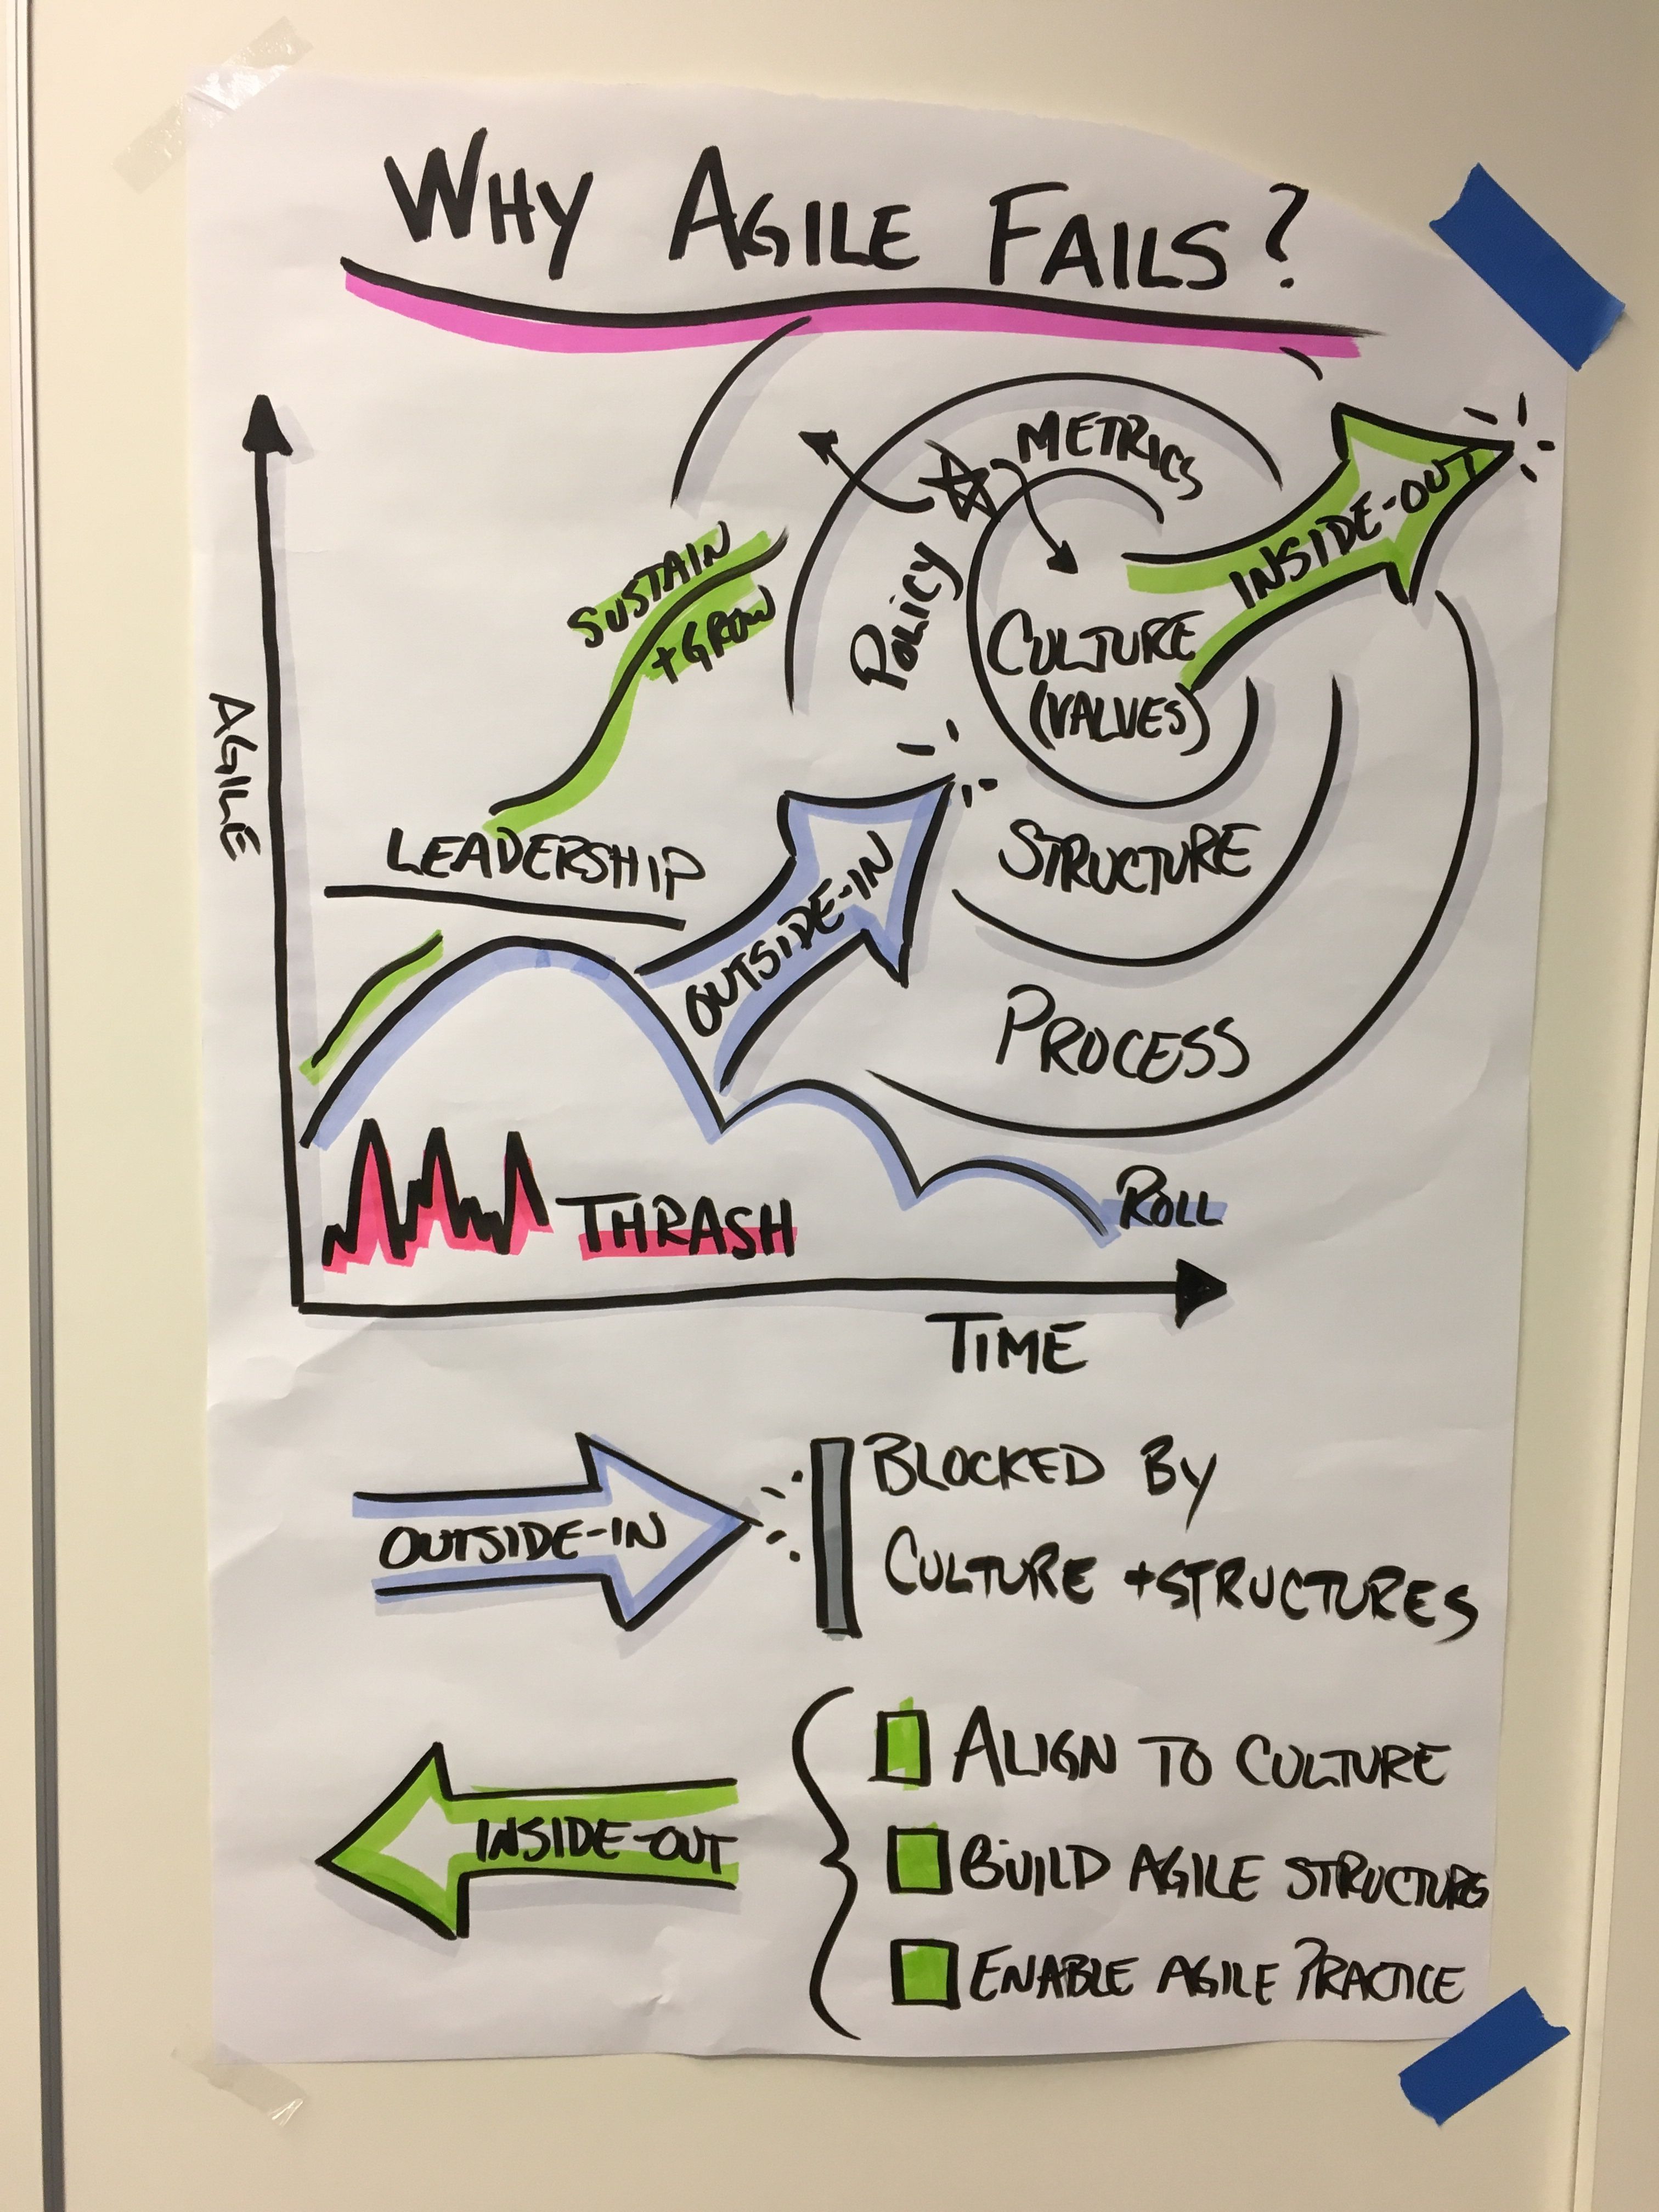 WHY AGILE FAILS?
METRICS
INSIDE-OUT
SUSTAIN
+GROW
POLICY
CULTURE
(VALUES)
AGILE
LEADERSHIP
OUTSIDE-IN
STRUCTURE
PROCESS
THRASH
ROLL
TIME
OUTSIDE-IN
BLOCKED BY
CULTURE +STRUCTURES
INSIDE-OUT
ALIGN TO CULTURE
BUILD AGILE STRUCTURES
ENABLE AGILE PRACTICE